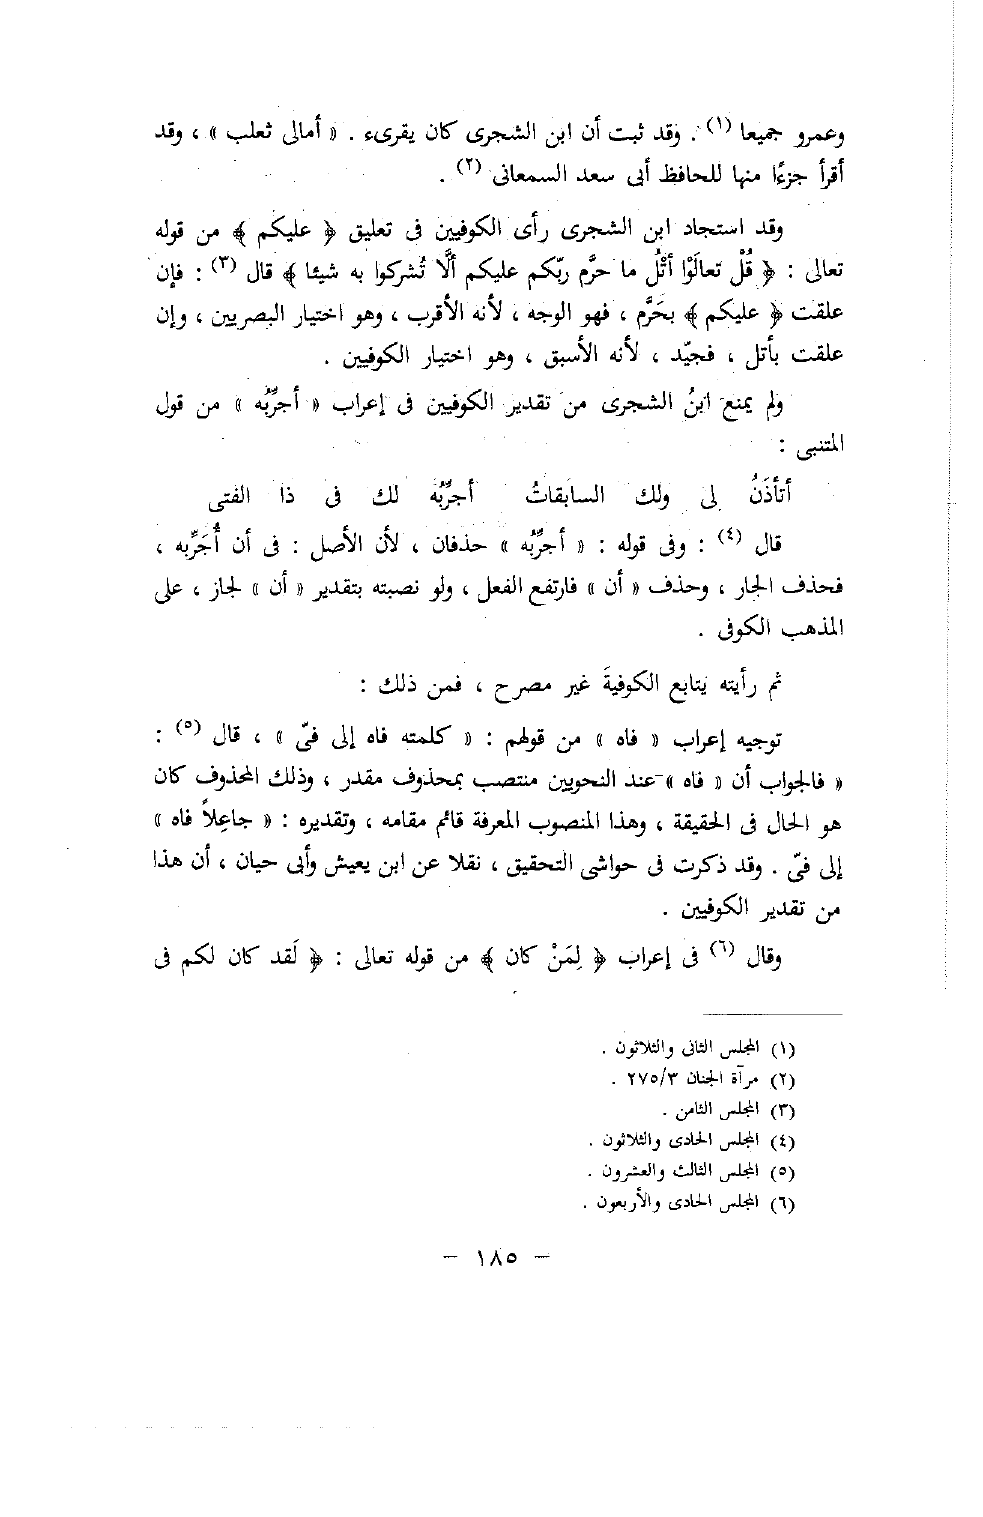 وعمرو جميعا (١) . وقد ثبت أن ابن الشجرى كان يقرىء . « أمالى ثعلب » ، وقد
أقرأ جزءًا منها للحافظ أبى سعد السمعانى (٢) .
وقد استجاد ابن الشجرى رأى الكوفيين فى تعليق ﴿ عليكم ﴾ من قوله
تعالى : ﴿ قُلْ تعالَوْا أتْلُ ما حرَّم ربّكم عليكم ألَّا تُشركوا به شيئا ﴾ قال (٣) : فإن
علقت ﴿ عليكم ﴾ بحَرَّم ، فهو الوجه ، لأنه الأقرب ، وهو اختيار البصريين ، وإن
علقت بأتل ، فجيّد ، لأنه الأسبق ، وهو اختيار الكوفيين .
ولم يمنع ابنُ الشجرى من تقدير الكوفيين فى إعراب « أجرِّبُه » من قول
المتنبى :
أتأذَنُ لى ولك السابقاتُ أجرِّبُه لك فى ذا الفتى
قال (٤) : وفى قوله : « أجرِّبُه » حذفان ، لأن الأصل : فى أن أُجَرِّبه ،
فحذف الجار ، وحذف « أن » فارتفع الفعل ، ولو نصبته بتقدير « أن » لجاز ، على
المذهب الكوفى .
ثم رأيته يتابع الكوفيةَ غير مصرح ، فمن ذلك :
توجيه إعراب « فاه » من قولهم : « كلمته فاه إلى فىّ » ، قال (٥) :
« فالجواب أن « فاه » عند النحويين منتصب بمحذوف مقدر ، وذلك المحذوف كان
هو الحال فى الحقيقة ، وهذا المنصوب المعرفة قائم مقامه ، وتقديره : « جاعِلاً فاه »
إلى فىّ . وقد ذكرت فى حواشى التحقيق ، نقلا عن ابن يعيش وأبى حيان ، أن هذا
من تقدير الكوفيين .
وقال (٦) فى إعراب ﴿ لِمَنْ كان ﴾ من قوله تعالى : ﴿ لَقد كان لكم فى
(١) المجلس الثانى والثلاثون .
(٢) مرآة الجنان ٢٧٥/٣ .
(٣) المجلس الثامن .
(٤) المجلس الحادى والثلاثون .
(٥) المجلس الثالث والعشرون .
(٦) المجلس الحادى والأربعون .
– ١٨٥ –